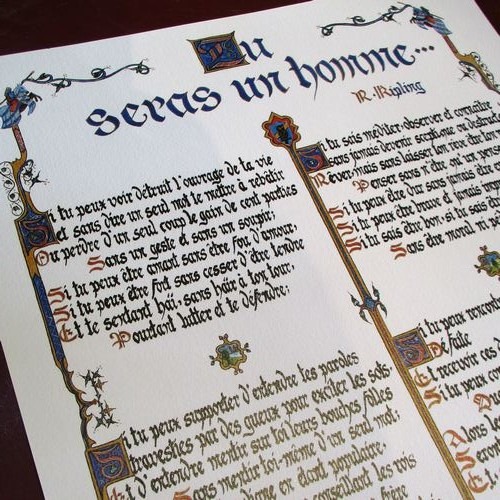 Tu
seras un homme...
R. Kipling
Si tu peux voir détruit l'ouvrage de ta vie
et sans dire un seul mot te mettre à rebâtir
Ou perdre d'un seul coup le gain de cent parties
Sans un geste et sans un soupir;
Si tu peux être amant sans être fou d'amour,
Si tu peux être fort sans cesser d'être tendre
Et te sentant haï, sans haïr à ton tour,
Pourtant lutter et te défendre;
Si tu peux supporter d'entendre tes paroles
Travesties par des gueux pour exciter les sots,
Et d'entendre mentir sur toi leurs bouches folles
Sans mentir toi-même d'un seul mot;
digne en étant populaire,
conseillant les rois
Si tu sais méditer observer et connaître
Sans jamais devenir sceptique ou destructeur
Rêver, mais sans laisser ton rêve être ton
Penser sans n'être qu'un
Si tu peux être dur sans jamais être
Si tu peux être brave et jamais
Si tu sais être bon, si tu sais
Sans être moral ni
Si tu peux
Défaite
Et recevoir ces
Si tu peux
Alors